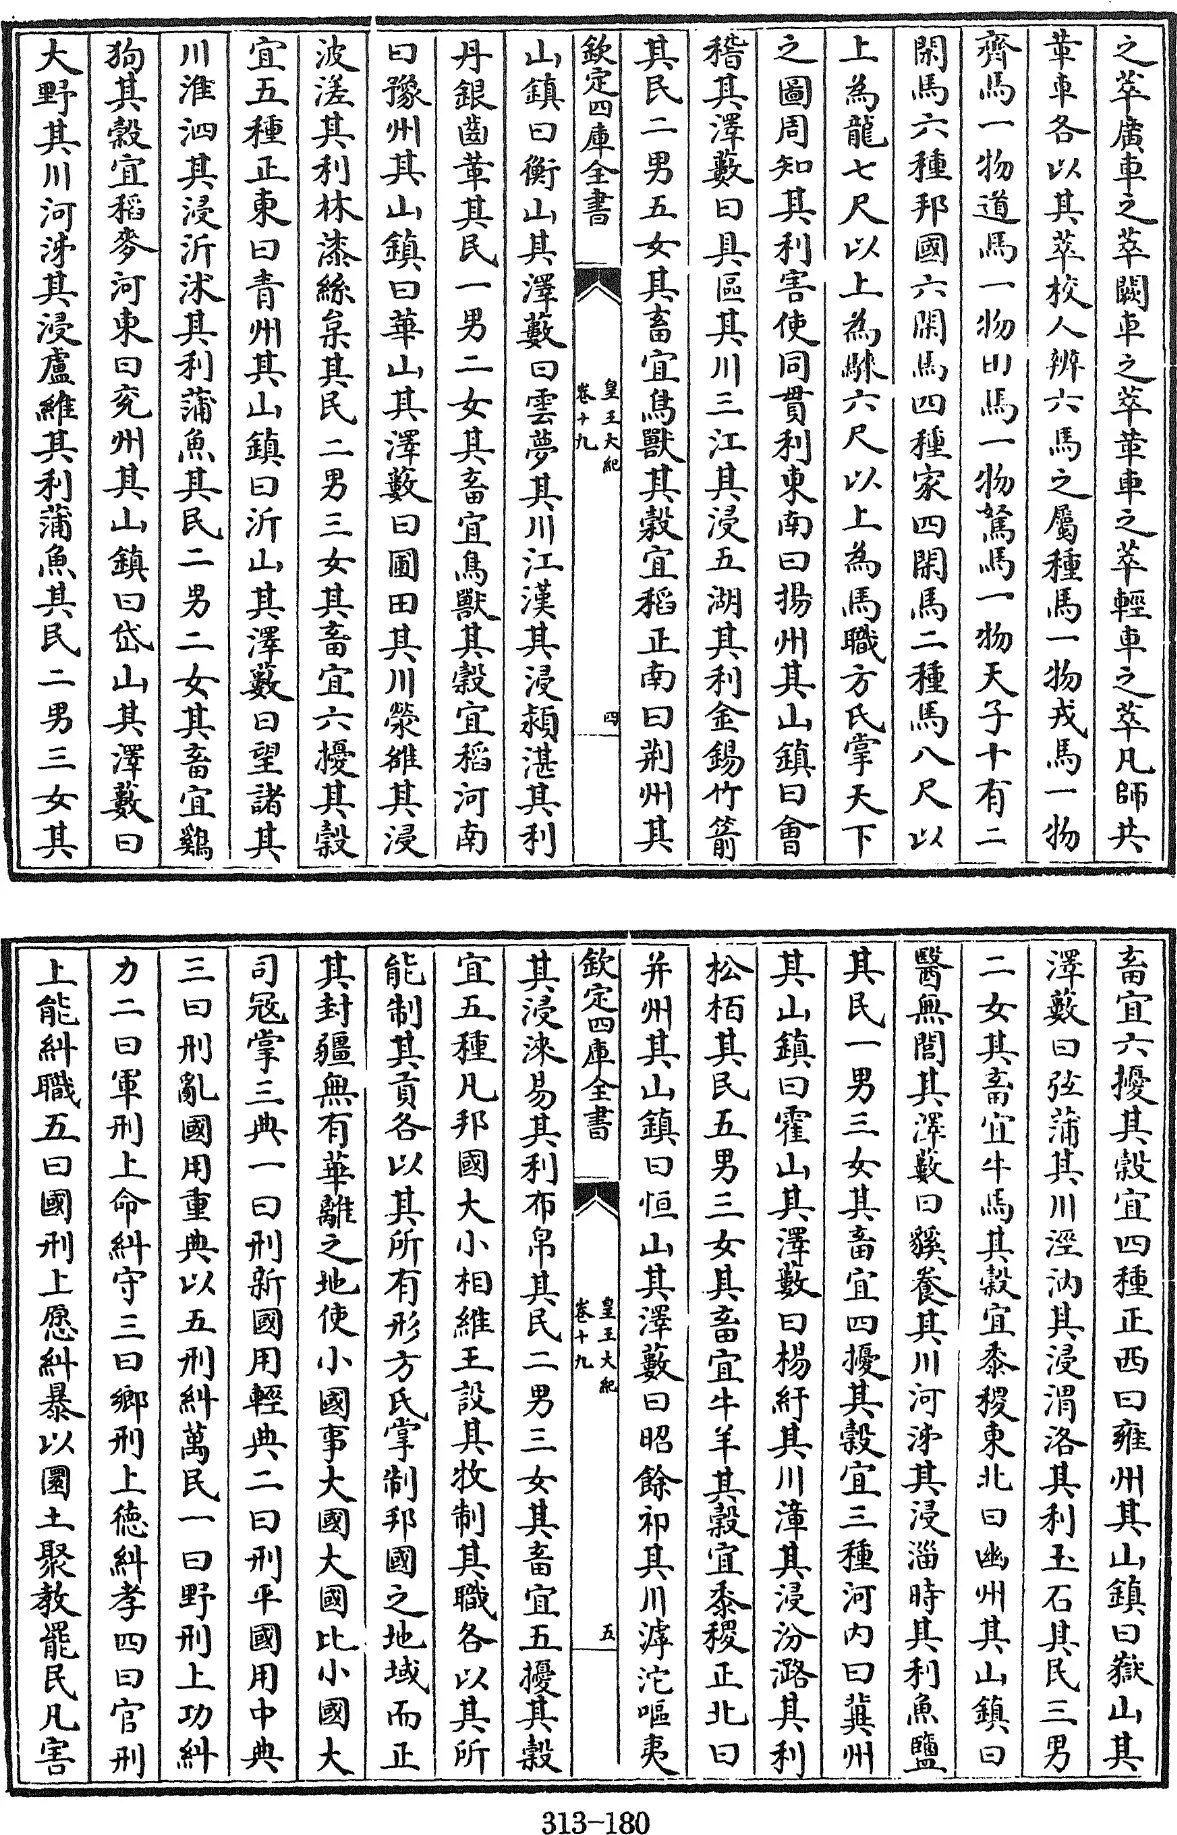 之萃廣車之萃闕車之萃苹車之萃輕車之萃凡師共
革車各以其萃校人辨六馬之屬種馬一物戎馬一物
齊馬一物道馬一物田馬一物駑馬一物天子十有二
閑馬六種邦國六閑馬四種家四閑馬二種馬八尺以
上為龍七尺以上為騋六尺以上為馬職方氏掌天下
之圖周知其利害使同貫利東南曰揚州其山鎮曰會
稽其澤藪曰具區其川三江其浸五湖其利金錫竹箭
其民二男五女其畜宜鳥獸其穀宜稻正南曰荆州其
欽定四庫全書
皇王大紀
卷十九
四
山鎮曰衡山其澤藪曰雲夢其川江漢其浸潁湛其利
丹銀齒革其民一男二女其畜宜鳥獸其穀宜稻河南
曰豫州其山鎮曰華山其澤藪曰圃田其川滎雒其浸
波溠其利林漆絲枲其民二男三女其畜宜六擾其穀
宜五種正東曰青州其山鎮曰沂山其澤藪曰望諸其
川淮泗其浸沂沭其利蒲魚其民二男二女其畜宜鷄
狗其穀宜稻麥河東曰兗州其山鎮曰岱山其澤藪曰
大野其川河泲其浸盧維其利蒲魚其民二男三女其
畜宜六擾其穀宜四種正西曰雍州其山鎮曰嶽山其
澤藪曰弦蒲其川涇汭其浸渭洛其利玉石其民三男
二女其畜宜牛馬其穀宜黍稷東北曰幽州其山鎮曰
醫無閭其澤藪曰貕養其川河泲其浸淄時其利魚鹽
其民一男三女其畜宜四擾其穀宜三種河内曰冀州
其山鎮曰霍山其澤藪曰楊紆其川漳其浸汾潞其利
松柏其民五男三女其畜宜牛羊其穀宜黍稷正北曰
并州其山鎮曰恒山其澤藪曰昭餘祁其川滹沱嘔夷
欽定四庫全書
皇王大紀
卷十九
五
其浸淶易其利布帛其民二男三女其畜宜五擾其穀
宜五種凡邦國大小相維王設其牧制其職各以其所
能制其貢各以其所有形方氏掌制邦國之地域而正
其封疆無有華離之地使小國事大國大國比小國大
司宼掌三典一曰刑新國用輕典二曰刑平國用中典
三曰刑亂國用重典以五刑糾萬民一曰野刑上功糾
力二曰軍刑上命糾守三曰鄉刑上德糾孝四曰官刑
上能糾職五曰國刑上愿糾暴以圜土聚教罷民凡害
313-180